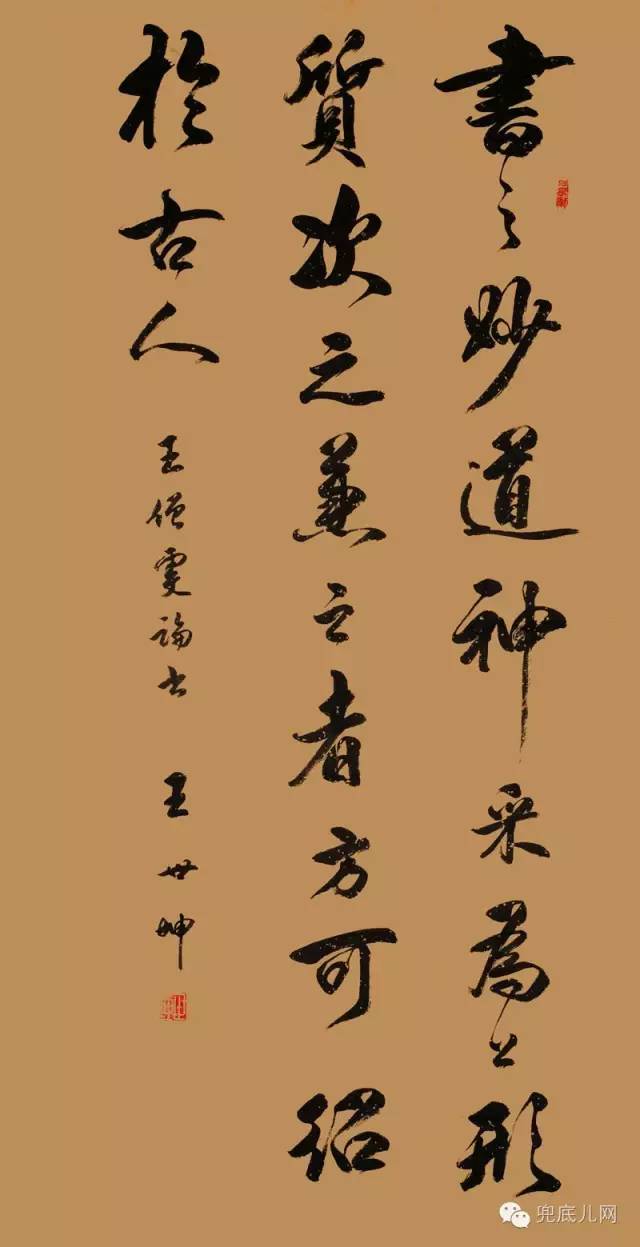 書之妙道神采爲上形
質次之兼之者方可紹
於古人
王僧虔論書 王世坤
兜底儿网